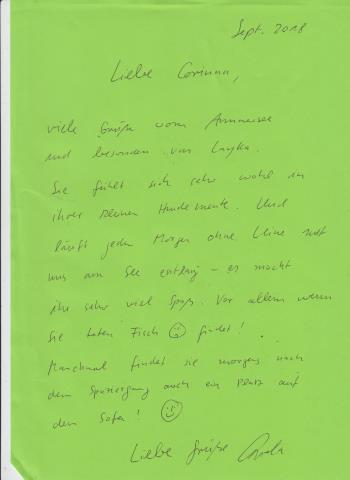 Sept. 2018
Liebe Corinna,
viele Grüße vom Ammersee
und besonders von Layka.
Sie fühlt sich sehr wohl in
ihrer kleinen Hundemeute. Und
läuft jeden Morgen ohne Leine mit
uns am See entlang – es macht
ihr sehr viel Spaß. Vor allem wenn
sie toten Fisch ☹ findet!
Manchmal findet sie morgens nach
dem Spaziergang auch ein Platz auf
dem Sofa! ☺
Liebe Grüße